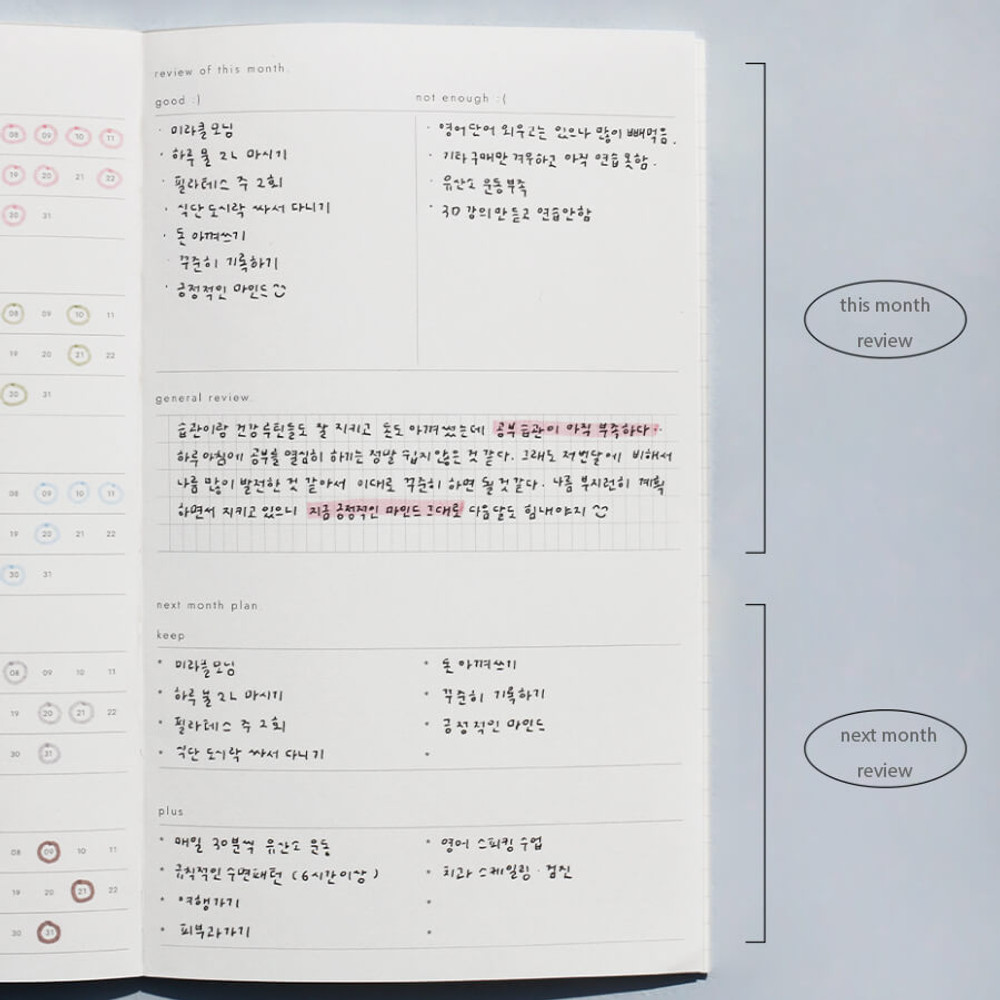 review of this month.
good :)
· 미라클모닝
· 하루 물 2L 마시기
· 필라테스 주 2회
· 식단 도시락 싸서 다니기
· 돈 아껴쓰기
· 꾸준히 기록하기
· 긍정적인 마인드
not enough :(
· 영어단어 외우고는 있으나 많이 빼먹음.
· 기타 구매만 겨우하고 아직 연습못함.
· 유산소 운동부족
· 3D 강의만 듣고 연습안함
general review.
습관이랑 건강루틴들도 잘 지키고 돈도 아껴 썼는데 공부습관이 아직 부족하다..
하루아침에 공부를 열심히 하기는 정말 쉽지않은 것 같다. 그래도 저번달에 비해서
나름 많이 발전한 것 같아서 이대로 꾸준히 하면 될것같다. 나름 부지런히 계획
하면서 지키고 있으니 지금 긍정적인 마인드 그대로 다음달도 힘내야지
next month plan
keep
미라클모닝
하루 물 2L 마시기
필라테스 주 2회
식단 도시락 싸서 다니기
돈 아껴쓰기
꾸준히 기록하기
긍정적인 마인드
plus
매일 30분씩 유산소 운동
규칙적인 수면패턴 (6시간이상)
여행가기
피부과가기
영어 스피킹 수업
치과 스케일링 · 검진
08 09 10 11
19 20 21 22
30 31
08 09 10 11
19 20 21 22
30 31
08 09 10 11
19 20 21 22
30 31
08 09 10 11
19 20 21 22
30 31
08 09 10 11
19 20 21 22
30 31
this month
review
next month
review